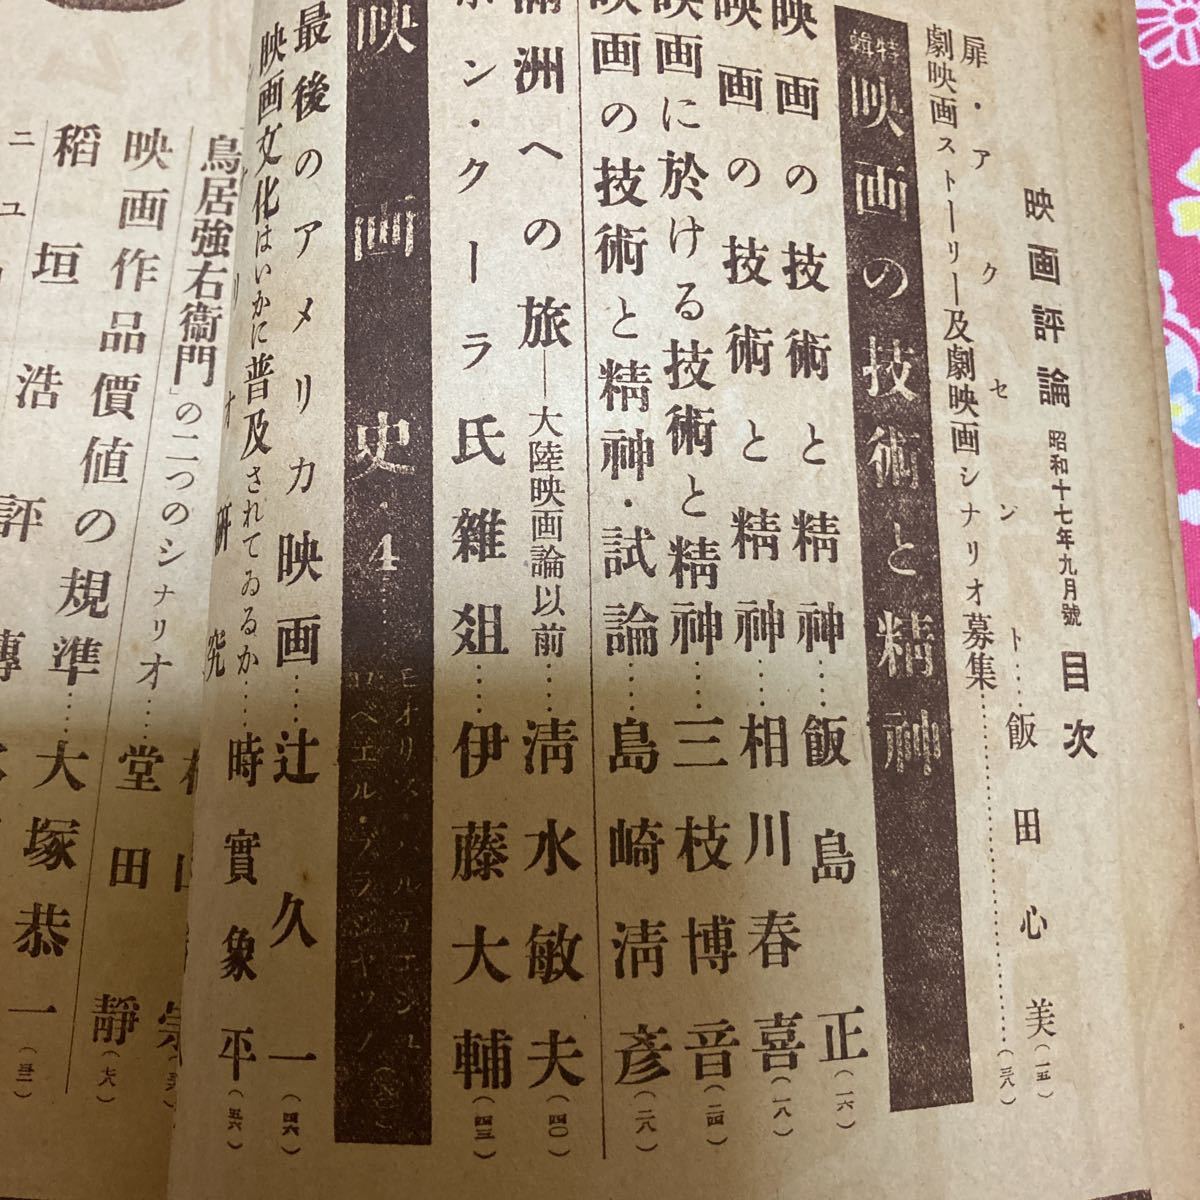 映画評論 昭和十七年九月號 目次
扉・アクセント……飯田心美(一五)
劇映画ストーリー及劇映画シナリオ募集……(三八)
特輯 映画の技術と精神
映画の技術と精神……飯島正(一六)
映画の技術と精神……相川春喜(一八)
映画に於ける技術と精神……三枝博音(二四)
映画の技術と精神・試論……島崎清彦(二八)
満洲への旅―大陸映画論以前……清水敏夫(四〇)
ボン・クーラ氏雜爼……伊藤大輔(四三)
映画史・4 モオリス・バルデエシュ ロベエル・ブラジヤツク
最後のアメリカ映画……辻久一(四六)
映画文化はいかに普及されてゐるか……時實象平(五六)
シナリオ研究
「鳥居強右衞門」の二つのシナリオ……
映画作品價値の規準……堂田靜(七八)
大塚恭一(三二)
稻垣浩評傳
ニュ